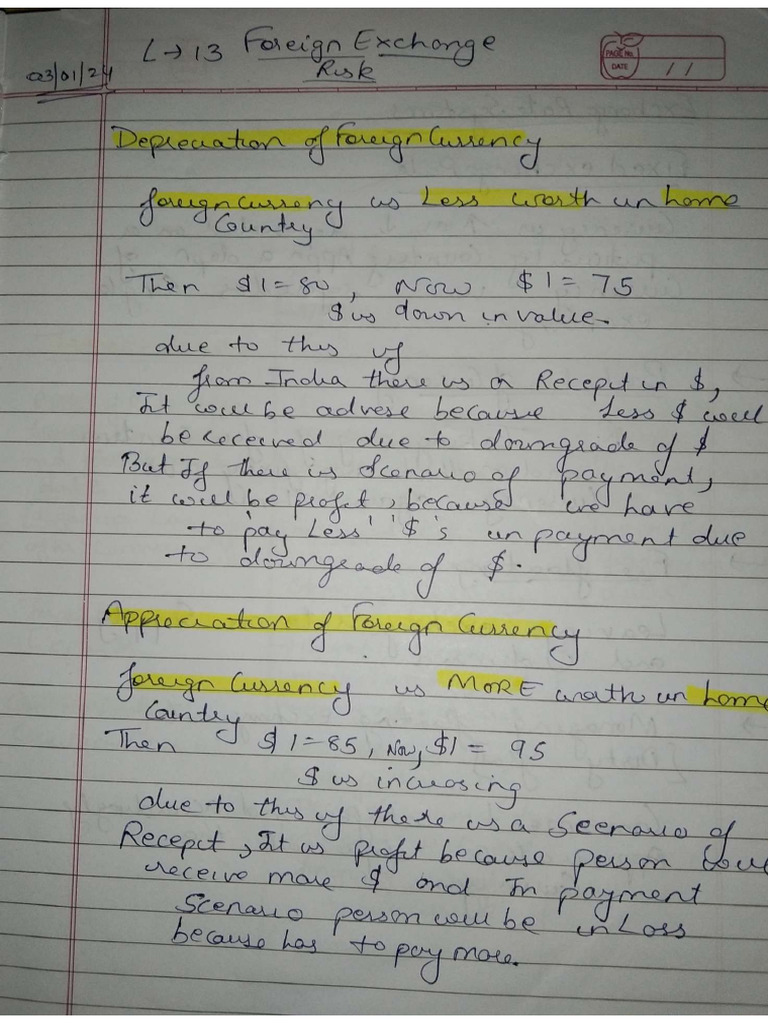 L → 13 Foreign Exchange
Risk
03/01/24
PAGE No.
DATE / /
Depreciation of Foreign Currency
foreign currency is Less worth in home
Country
Then $1 = 80, Now $1 = 75
$ is down in value.
due to this if
from India there is a Recepit in $,
It will be advese because Less $ will
be receeved due to downgrade of $
But If there is Scenario of payment,
it will be profit, because we have
to pay Less '$'s in payment due
to downgrade of $.
Appreciation of Foreign Currency
foreign Currency is MORE worth in home
Country
Then $1 = 85, Now, $1 = 95
$ is increasing
due to this if there is a Scenario of
Recepit, It is profit because person
receive more $ and In payment
Scenario person will be in Loss
because has to pay more.